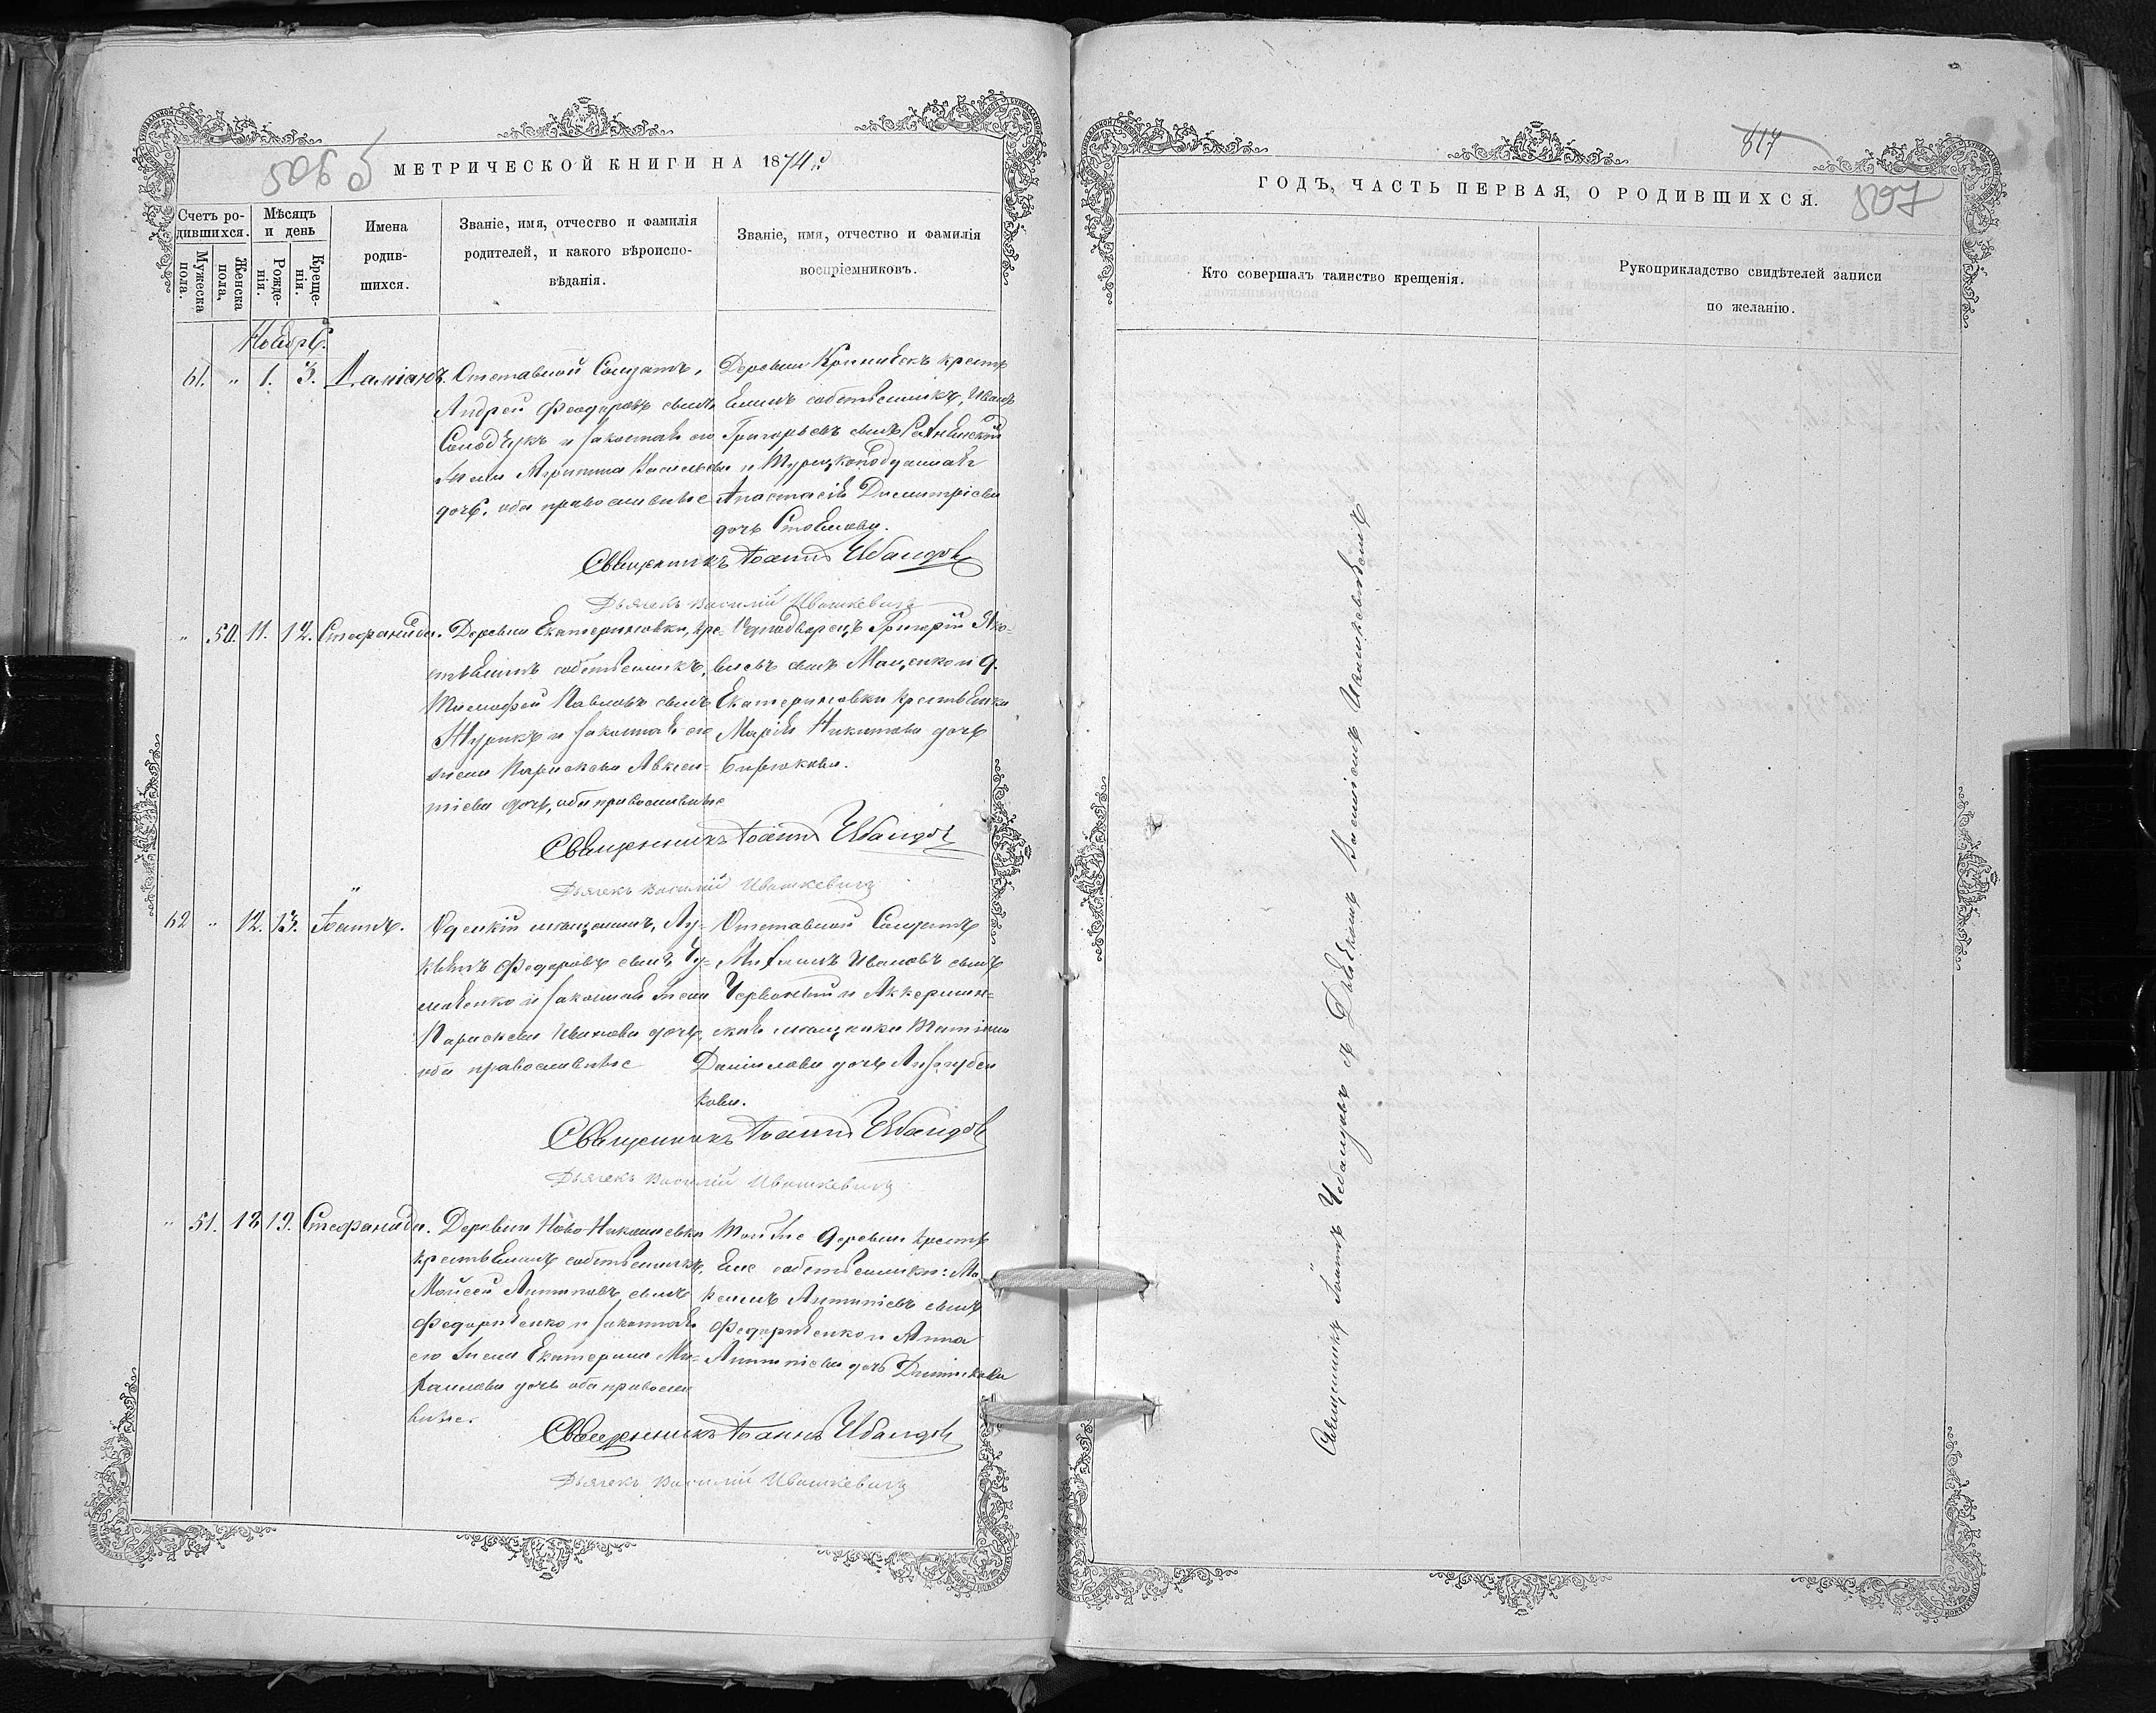 506 б
МЕТРИЧЕСКОЙ КНИГИ НА 1874 г.
Счетъ ро-
дившихся.
Мужеска
пола.
Женска
пола.
Мѣсяцъ
и день
Рожде-
нія.
Креще-
нія.
Имена
родив-
шихся.
Званіе, имя, отчество и фамилія
родителей, и какого вѣроиспо-
вѣданія.
Званіе, имя, отчество и фамилія
воспріемниковъ.
Ноября.
61. " 1. 3. Даміанъ.
Отставной Солдатъ,
Андрей Феодоровъ сынъ
и законная его
жена Васильева
дочь, оба православные
Деревни крестья
янинъ собственникъ, Иванъ
Григорьевъ сынъ
и
Анастасія Димитріева
дочь Стоянова.
Священникъ Іоаннъ Чебандовъ
Дьячекъ Василій Ивашкевичъ
" 50. 11. 12. Стефанида.
Деревни Екатериновки, кре-
стьянинъ собственникъ,
Тимофей Павловъ сынъ
Журикъ и законная его
жена Параскева Авксен-
тіева дочь, оба православные
Однодворецъ Григорій Яко-
влевъ сынъ Маценко и д.
Екатериновки крестьянка
Марія Никитова дочь
Бирюкова.
Священникъ Іоаннъ Чебандовъ
Дьячекъ Василій Ивашкевичъ
62 " 12. 13. Іоаннъ.
Одескій мѣщанинъ, Лу-
кьянъ Федоровъ сынъ Чу-
маченко и законная жена
Параскева Иванова дочь,
оба православные
Отставной Солдатъ
Михаилъ Ивановъ сынъ
Червоный и Аккерман-
ская мѣщанка Татіана
Даніилова дочь
кова.
Священникъ Іоаннъ Чебандовъ
Дьячекъ Василій Ивашкевичъ
" 51. 18. 19. Стефанида.
Деревни Ново-Николаевки
крестьянинъ собственникъ,
Моисей Антиповъ сынъ
Федорченко и законная
его жена Екатерина Ми-
хаилова дочь оба правосла
вные.
Той же деревни крестья
яне собственники: Ма
ксимъ Антиповъ сынъ
Федорченко и Анна
дочь
Священникъ Іоаннъ Чебандовъ
Дьячекъ Василій Ивашкевичъ
517
507
ГОДЪ, ЧАСТЬ ПЕРВАЯ, О РОДИВШИХСЯ.
Кто совершалъ таинство крещенія.
Рукоприкладство свидѣтелей записи
по желанію.
Священникъ Іоаннъ Чебандовъ съ Дьячкомъ Василіемъ Ивашкевичемъ